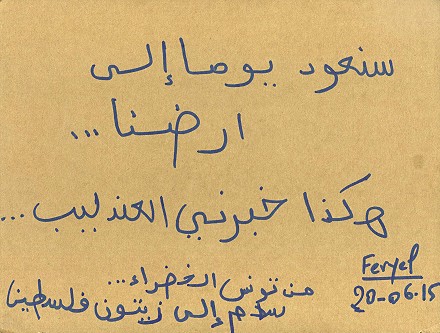 سنعود يوما إلى
ارضنا...
هكذا خبرني العندليب...
من تونس الخضراء...
سلام إلى زيتون فلسطيننا
Feryel
20-06-15